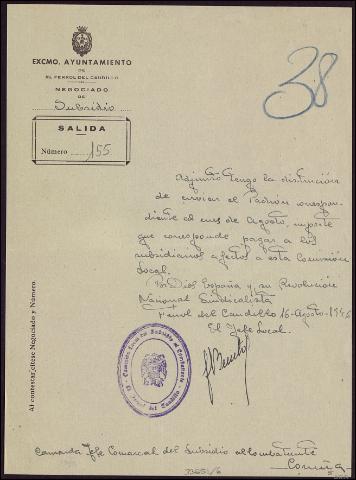 38
EXCMO. AYUNTAMIENTO
DE
EL FERROL DEL CAUDILLO
NEGOCIADO
DE
Subsidio
SALIDA
Número 155
Adjunto tengo la distinción
de enviar el Padrón correspon-
diente al mes de Agosto, importe
que corresponde pagar a los
subsidiarios afectos a esta Comisión
Local.
Por Dios España y su Revolución
Nacional Sindicalista
Ferrol del Caudillo 16-Agosto-194
El Jefe Local.
Comisión Local del Subsidio al Combatiente
El Ferrol del Caudillo
Al contestar, cítese Negociado y Número.
Camarada Jefe Comarcal del Subsidio al Combatiente
Coruña